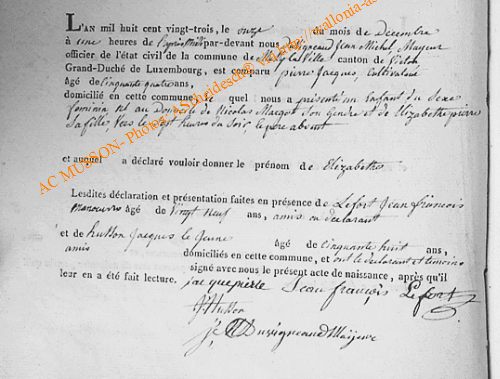 L'AN mil huit cent vingt-trois, le onze du mois de Decembre
à une heures de l'après midi par-devant nous Duvigneaud Jean Michel Mayeur
officier de l'état civil de la commune de la Ville canton de
Grand-Duché de Luxembourg, est comparu pierre Jacques, Cultivateur
âgé de Cinquante quatre ans,
domicilié en cette commune quel nous a présenté un Enfant du Sexe
feminin né au Domicile de Nicolas Margot Son Gendre et de Elizabethe pierre
Sa fille, Vers les Sept heures du Soir, le père absent
et auquel a déclaré vouloir donner le prénom de Elizabethe
Lesdites déclaration et présentation faites en présence de Lefort Jean francois
manoeuvre âgé de Vingt neuf ans, amis du declarant
et de husson Jacques le Jeune âgé de Cinquante huit ans,
amis domiciliés en cette commune, et ont le declarant et temoins
signé avec nous le présent acte de naissance, après qu'il
leur en a été fait lecture. jacque pierre Jean françois Lefort
J husson
Duvigneaud Mayeur
AC MUSSON- Photos